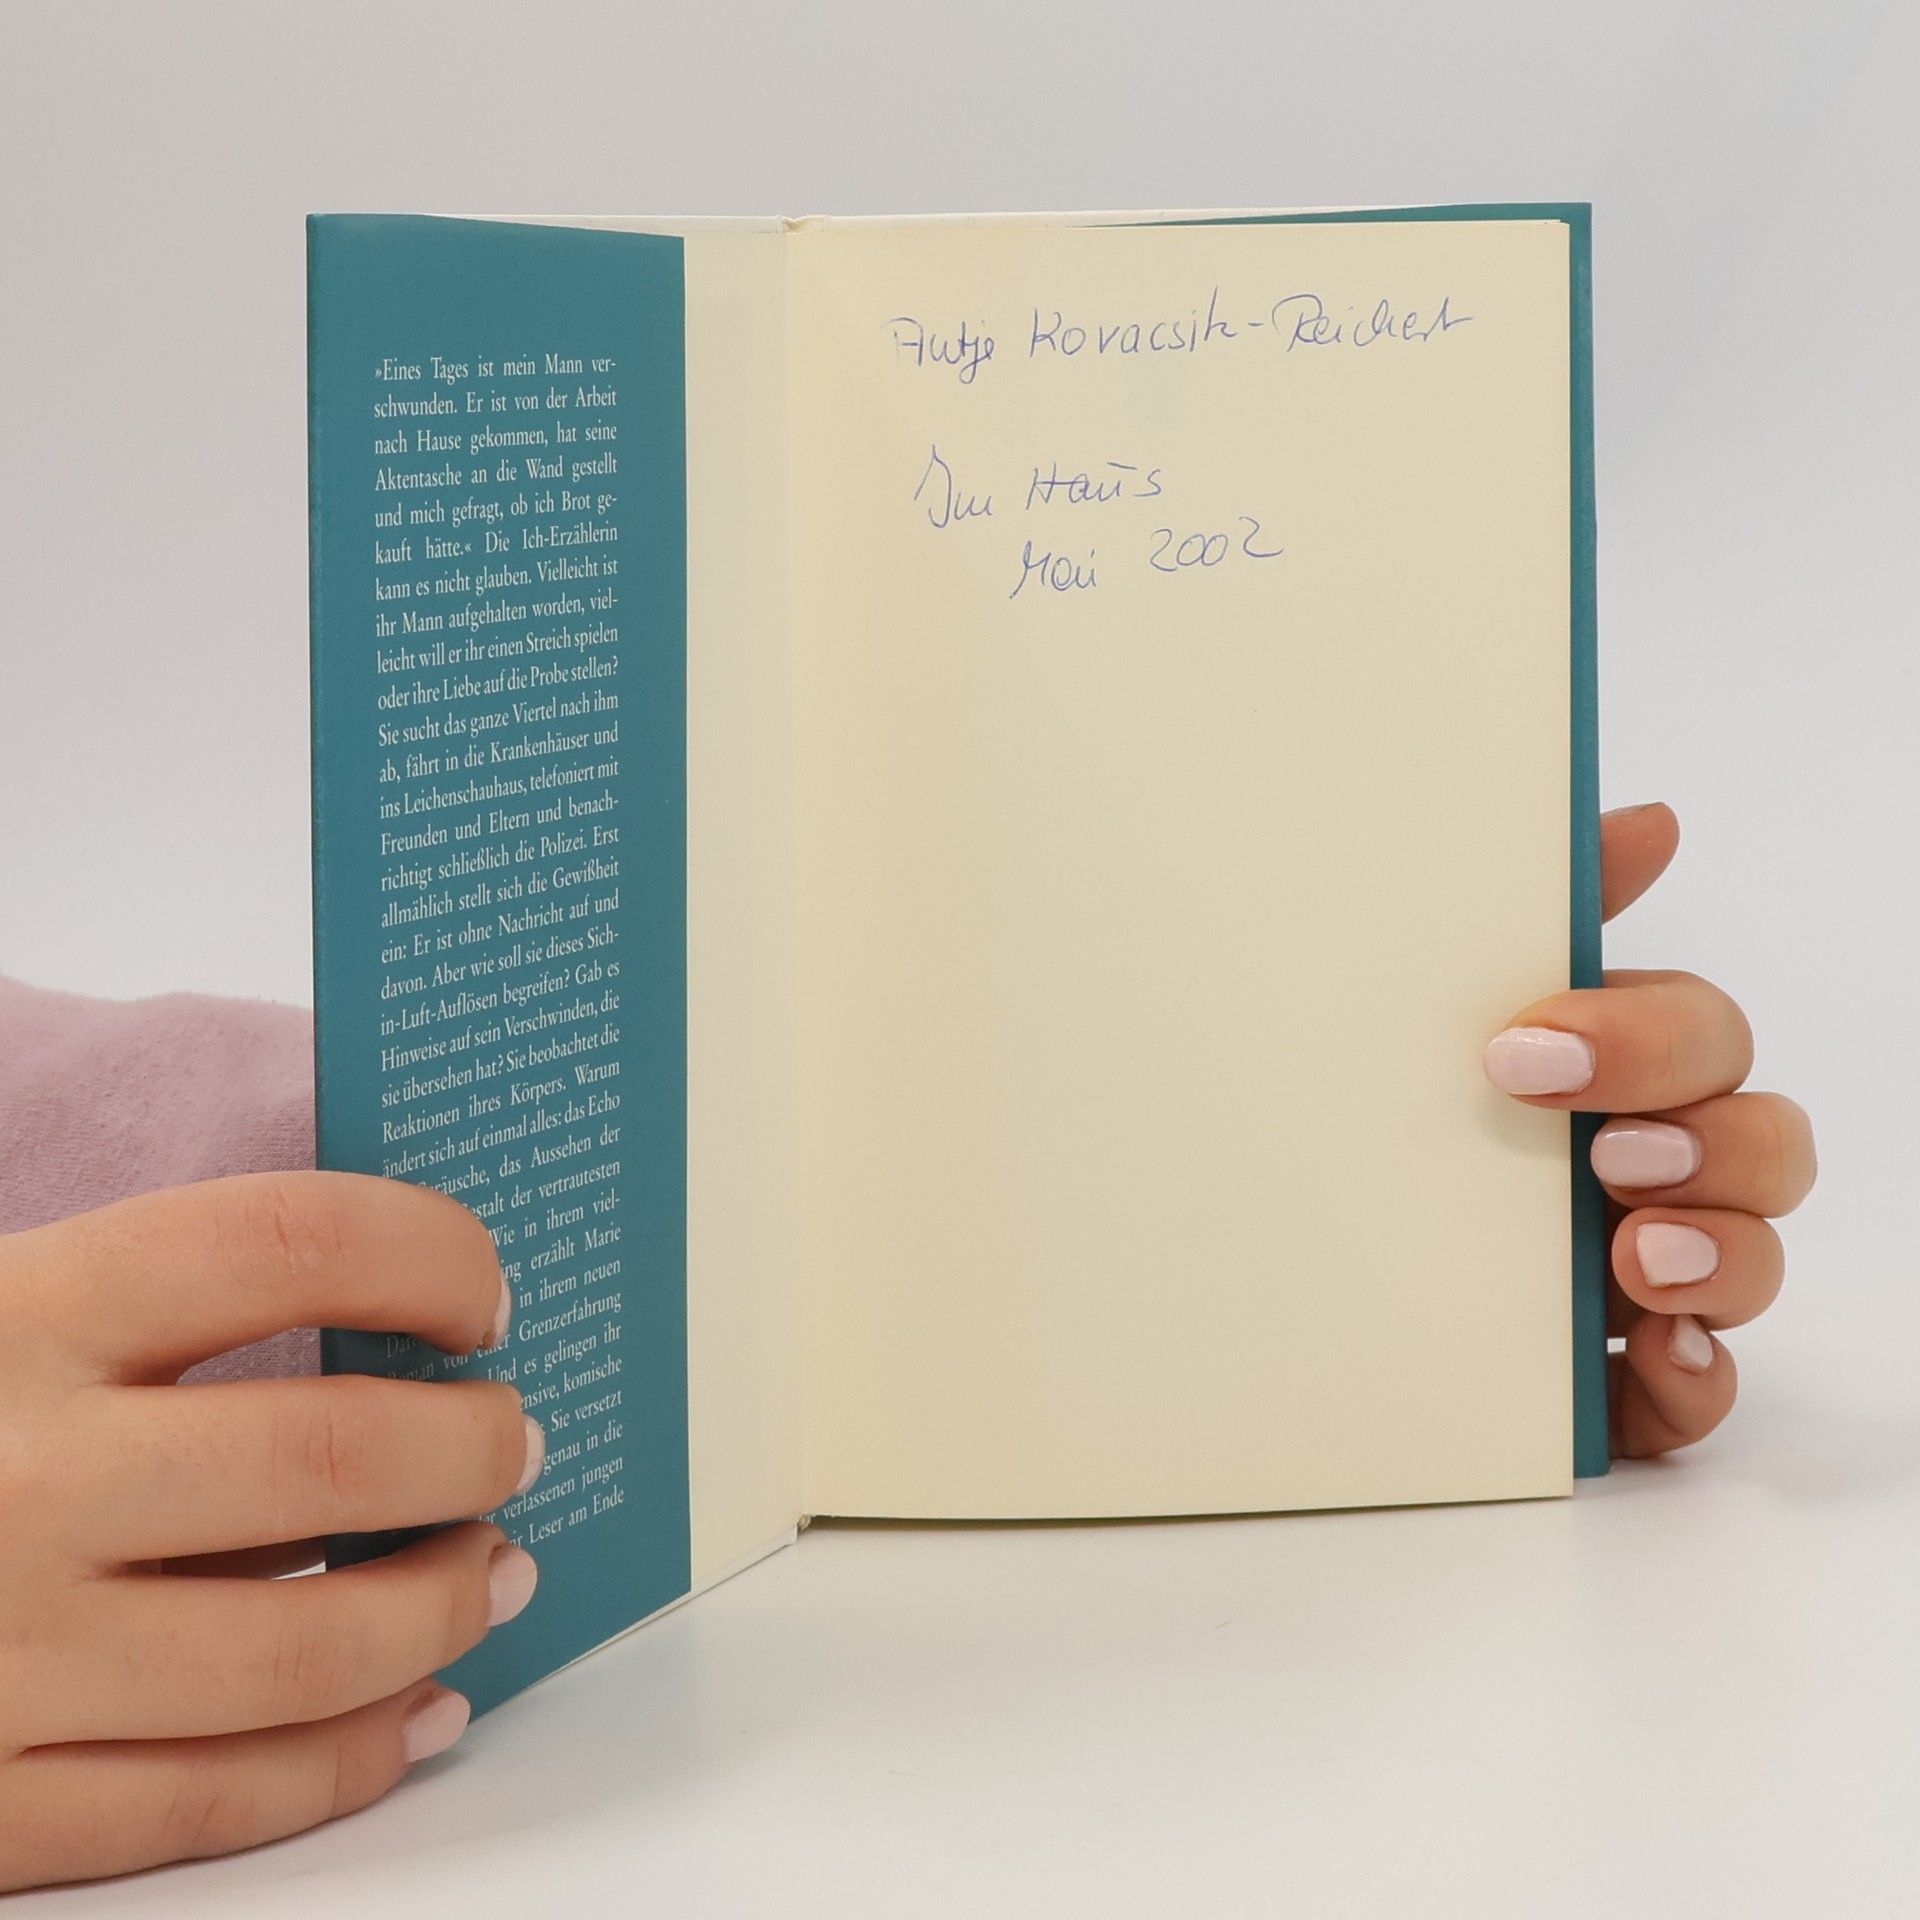 »Eines Tages ist mein Mann ver-
schwunden. Er ist von der Arbeit
nach Hause gekommen, hat seine
Aktentasche an die Wand gestellt
und mich gefragt, ob ich Brot ge-
kauft hätte.« Die Ich-Erzählerin
kann es nicht glauben. Vielleicht ist
ihr Mann aufgehalten worden, viel-
leicht will er ihr einen Streich spielen
oder ihre Liebe auf die Probe stellen?
Sie sucht das ganze Viertel nach ihm
ab, fährt in die Krankenhäuser und
ins Leichenschauhaus, telefoniert mit
Freunden und Eltern und benach-
richtigt schließlich die Polizei. Erst
allmählich stellt sich die Gewißheit
ein: Er ist ohne Nachricht auf und
davon. Aber wie soll sie dieses Sich-
in-Luft-Auflösen begreifen? Gab es
Hinweise auf sein Verschwinden, die
sie übersehen hat? Sie beobachtet die
Reaktionen ihres Körpers. Warum
ändert sich auf einmal alles: das Echo
räusche, das Aussehen der
estalt der vertrautesten
Wie in ihrem viel-
ng erzählt Marie
in ihrem neuen
Roman von einer Grenzerfahrung
Und es gelingen ihr
ensive, komische
Sie versetzt
genau in die
er verlassenen jungen
Leser am Ende
Antje Kovacsik-Reichert
Im Haus
Mai 2002